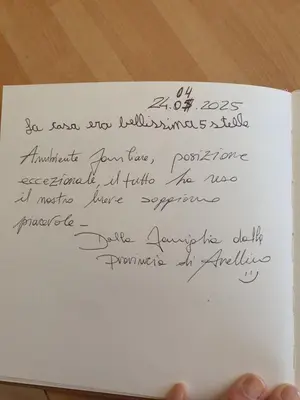 04
24.05.2025
La casa era bellissima 5 stelle
Ambiente familiare, posizione
eccezionale, il tutto ha reso
il nostro breve soggiorno
piacevole -
Dalla famiglia dalla
provincia di Avellino